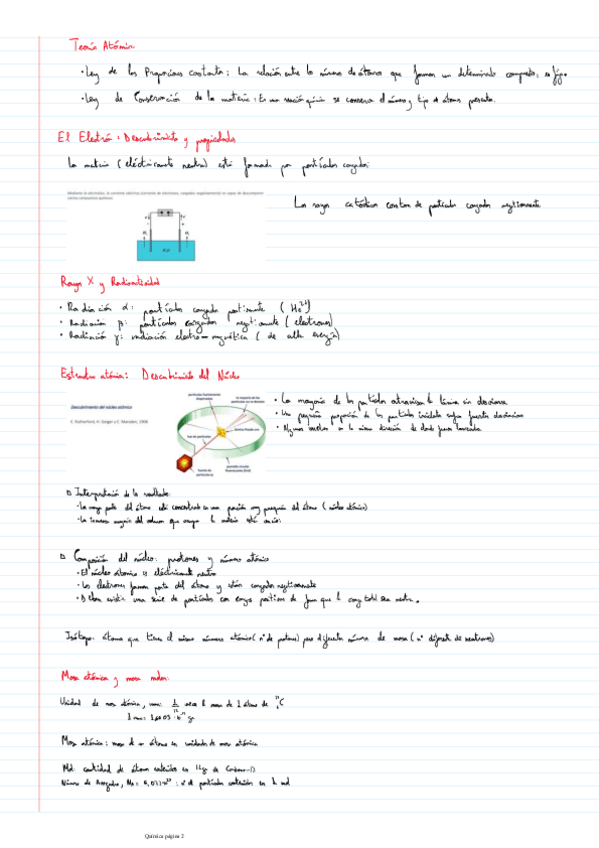 Teoría Atómica
· Ley de las Proporciones constantes: La relación entre los números de átomos que forman un determinado compuesto, es fija.
· Ley de Conservación de la materia: En una reacción química se conserva el número y tipo de átomos presentes.
El Electrón: Descubrimiento y propiedades
La materia (eléctricamente neutra) está formada por partículas cargadas:
Mediante la electrólisis, la corriente eléctrica (corriente de electrones, cargados negativamente) es capaz de descomponer
ciertos compuestos químicos.
Los rayos catódicos constan de partículas cargadas negativamente
Rayos X y Radioactividad
· Radiación α: partículas cargadas positivamente (He²⁺)
· Radiación β: partículas cargadas negativamente (electrones)
· Radiación γ: radiación electromagnética (de alta energía)
Estructura atómica: Descubrimiento del Núcleo
Descubrimiento del núcleo atómico
E. Rutherford, H. Geiger y E. Marsden, 1908.
· La mayoría de las partículas atraviesan la lámina sin desviarse
· Una pequeña proporción de las partículas incidentes sufren fuertes desviaciones
· Algunas vuelven a la misma dirección de donde fueron lanzadas
Interpretación de los resultados:
· La mayor parte del átomo está concentrada en una porción muy pequeña del átomo (núcleo atómico)
· La inmensa mayoría del volumen que ocupa la materia está vacío
Composición del núcleo: protones y número atómico
· El núcleo atómico es eléctricamente neutro
· Los electrones forman parte del átomo y están cargados negativamente
· Deben existir una serie de partículas con cargas positivas de forma que la carga total sea neutra.
Isótopo: átomos que tienen el mismo número atómico (nº de protones) pero diferente número de masa (nº diferente de neutrones)
Masa atómica y masa molar:
Unidad de masa atómica, uma: 1/12 de la masa de 1 átomo de ¹²C
Masa atómica: masa de un átomo en unidades de masa atómica
Mol: cantidad de átomos contenidos en 12gr de Carbono-12
Número de Avogadro, : nº de partículas contenidas en 1 mol
Química página 2